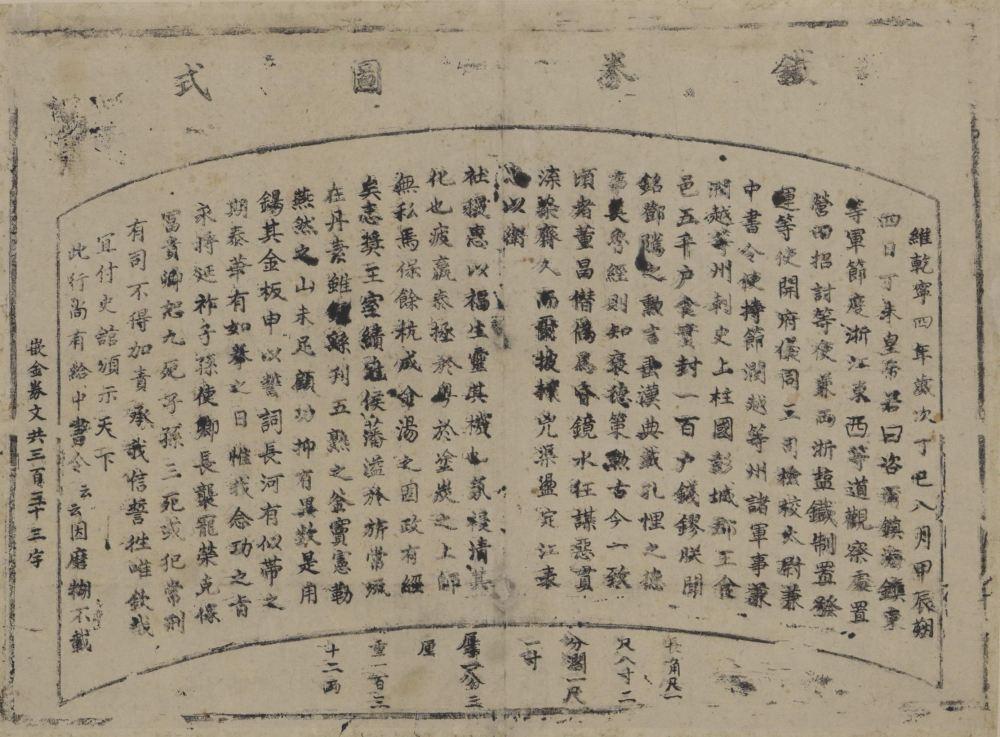 鐵券圖式
維乾寧四年歲次丁巳八月甲辰朔
四日丁未皇帝若曰咨爾鎮海鎮東
等軍節度浙江東西等道觀察處置
營田招討等使兼兩浙鹽鐵制置發
運等使開府儀同三司檢校太尉兼
中書令使持節潤越等州諸軍事兼
潤越等州刺史上柱國彭城郡王食
邑五千户食實封一百户錢鏐朕聞
銘鄧隲之勲言垂漢典載孔悝之德
事美魯經則知褒德策勲古今一致
頃者董昌僭偽爲昏鏡水狂謀惡貫
渫染齊人而爾披攘兇渠盪定江表
忠以衛
社稷惠以福生靈其機也氛祲清其
化也疲羸泰拯於粵於塗炭之上師
無私焉保餘杭成金湯之固政有經
矣志奬王室績冠侯藩溢於旂常流
在丹素雖鍾繇刊五熟之釜竇憲勒
燕然之山未足顧功抑有異數是用
錫其金板申以誓詞長河有似帶之
期泰華有如拳之日惟我念功之旨
永將延祚子孫使卿長襲寵榮克保
富貴卿恕九死子孫三死或犯常刑
有司不得加責承我信誓往唯欽哉
宜付史館頒示天下
此行尚有給中書令云云因磨糊不載
嵌金券文共三百三十三字
長角尺一
尺八寸二
分濶一尺
一寸
厚一分三
厘
重一百三
十二兩